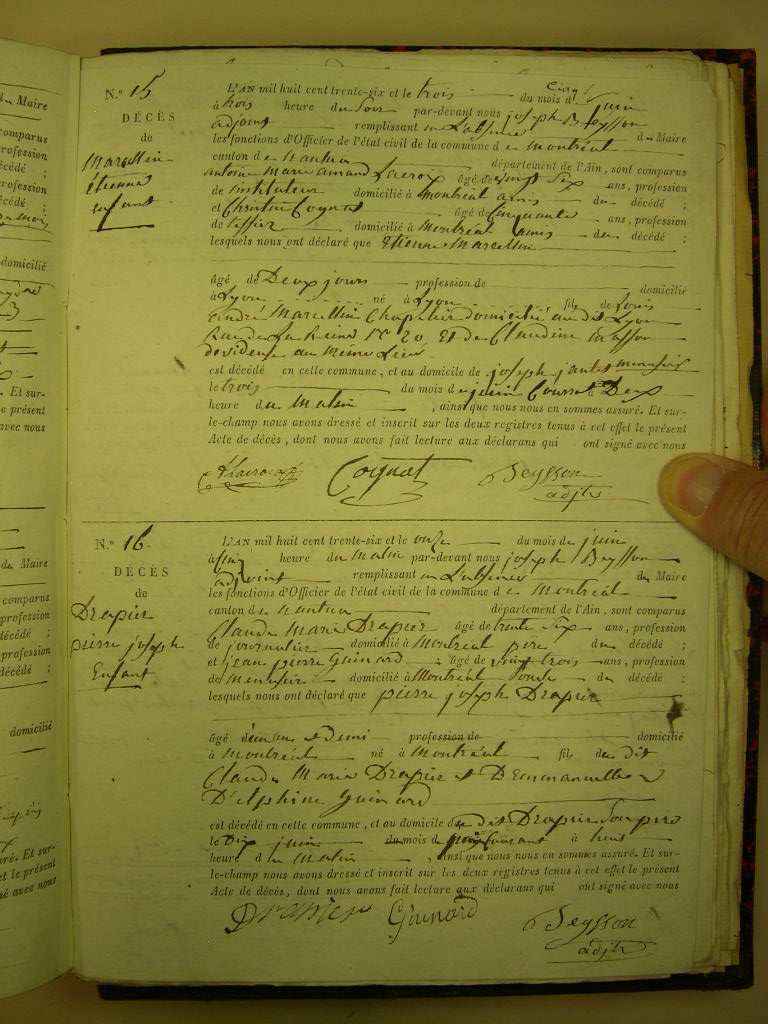 N.° 15
DÉCÈS
de
Marcellin
étienne
enfant
L'AN mil huit cent trente-six et le trois du mois de juin
à trois heure du Soir par-devant nous joseph Beysson
adjoint remplissant en L'absence du Maire
les fonctions d'Officier de l'état civil de la commune de montréal
canton de nantua département de l'Ain, sont comparus
antoine Marie armand Lacroix âgé de vingt Six ans, profession
de instituteur domicilié à montréal amis du décédé ;
et Christin Cognat âgé de Cinquante ans, profession
de domicilié à Montréal amis du décédé ;
lesquels nous ont déclaré que Etienne Marcellin
âgé de Deux jours profession de domicilié
à Lyon né à Lyon fils de Louis
andré Marcellin Chapelier domicilié au dit Lyon
Rue de La Reine N.° 20, Et de Claudine masson
devideuse au même Lieu
est décédé en cette commune, et au domicile de joseph jantet menuisier
le trois du mois de juin Courrant à Deux
heure du Matin , ainsi que nous nous en sommes assuré. Et sur-
le-champ nous avons dressé et inscrit sur les deux registres tenus à cet effet le présent
Acte de décès, dont nous avons fait lecture aux déclarans qui ont signé avec nous
ALacroix Cognat Beysson
adjt
N.° 16
DÉCÈS
de
Drapier
pierre joseph
Enfant
L'AN mil huit cent trente-six et le onze du mois de juin
à heure du Matin par-devant nous joseph Beysson
adjoint remplissant en L'absence du Maire
les fonctions d'Officier de l'état civil de la commune de Montréal
canton de nantua département de l'Ain, sont comparus
Claude Marie Drapier âgé de trente Six ans, profession
de journalier domicilié à Montréal père du décédé ;
et jean pierre Guinard âgé de vingt trois ans, profession
de Menuisier domicilié à Montréal oncle du décédé ;
lesquels nous ont déclaré que pierre joseph Drapier
âgé d'un an et Demi profession de domicilié
à Montréal né à Montréal fils du dit
Claude Marie Drapier et D'emmanuelle
D'elphine guinard
est décédé en cette commune, et au domicile du dit Drapier Son père
le Dix juin du mois de juin Courant à huit
heure du Matin , ainsi que nous nous en sommes assuré. Et sur-
le-champ nous avons dressé et inscrit sur les deux registres tenus à cet effet le présent
Acte de décès, dont nous avons fait lecture aux déclarans qui ont signé avec nous
Drapier Guinard Beysson
adjt